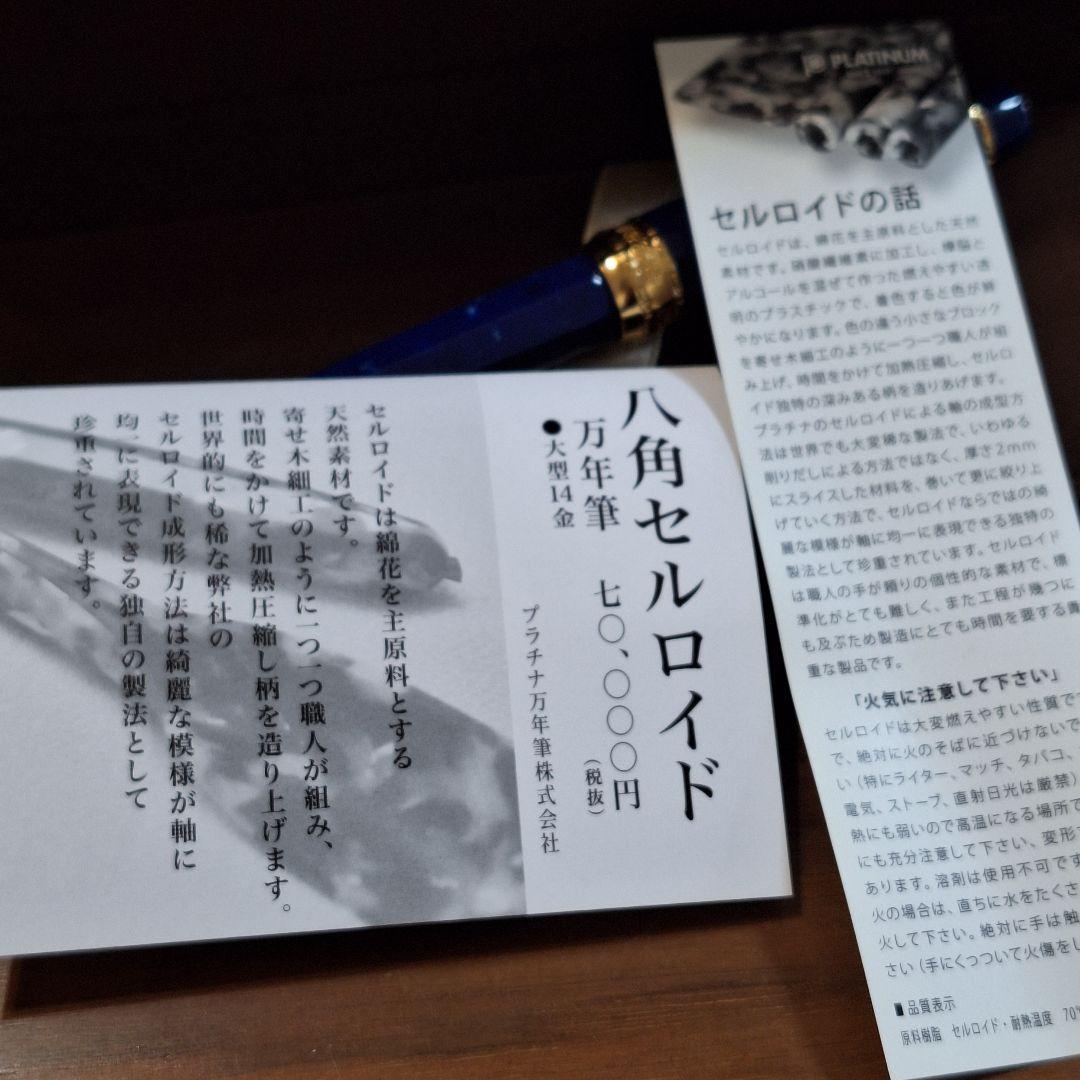 八角セルロイド
万年筆 七〇、〇〇〇円
(税抜)
●大型14金
プラチナ万年筆株式会社
セルロイドは綿花を主原料とする
天然素材です。
寄せ木細工のように一つ一つ職人が組み、
時間をかけて加熱圧縮し柄を造り上げます。
世界的にも稀な弊社の
セルロイド成形方法は綺麗な模様が軸に
均一に表現できる独自の製法として
珍重されています。
PLATINUM
セルロイドの話
セルロイドは、綿花を主原料とした天然
素材です。硝酸繊維素に加工し、樟脳と
アルコールを混ぜて作った燃えやすい透
明のプラスチックで、着色すると色が鮮
やかになります。色の違う小さなブロック
を寄せ木細工のように一つ一つ職人が組
み上げ、時間をかけて加熱圧縮し、セルロ
イド独特の深みある柄を造りあげます。
プラチナのセルロイドによる軸の成型方
法は世界でも大変稀な製法で、いわゆる
削りだしによる方法ではなく、厚さ2mm
にスライスした材料を、巻いて更に絞り上
げていく方法で、セルロイドならではの綺
麗な模様が軸に均一に表現できる独特の
製法として珍重されています。セルロイド
は職人の手が頼りの個性的な素材で、標
準化がとても難しく、また工程が幾つに
も及ぶため製造にとても時間を要する貴
重な製品です。
「火気に注意して下さい」
セルロイドは大変燃えやすい性質で
で、絶対に火のそばに近づけないで
い(特にライター、マッチ、タバコ、
電気、ストーブ、直射日光は厳禁)
熱にも弱いので高温になる場所で
にも充分注意して下さい、変形
あります。溶剤は使用不可です
火の場合は、直ちに水をたくさ
火して下さい。絶対に手は触
さい(手にくっついて火傷をし
■品質表示
原料樹脂 セルロイド・耐熱温度 70℃